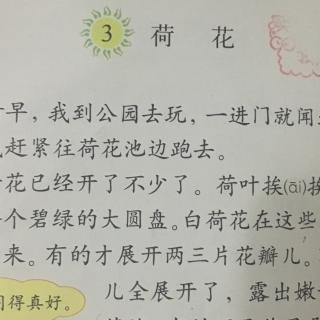 3 荷花
早，我到公园去玩，一进门就闻
赶紧往荷花池边跑去。
花已经开了不少了。荷叶挨(āi)挨
个碧绿的大圆盘。白荷花在这些
来。有的才展开两三片花瓣儿。
儿全展开了，露出嫩
得真好。